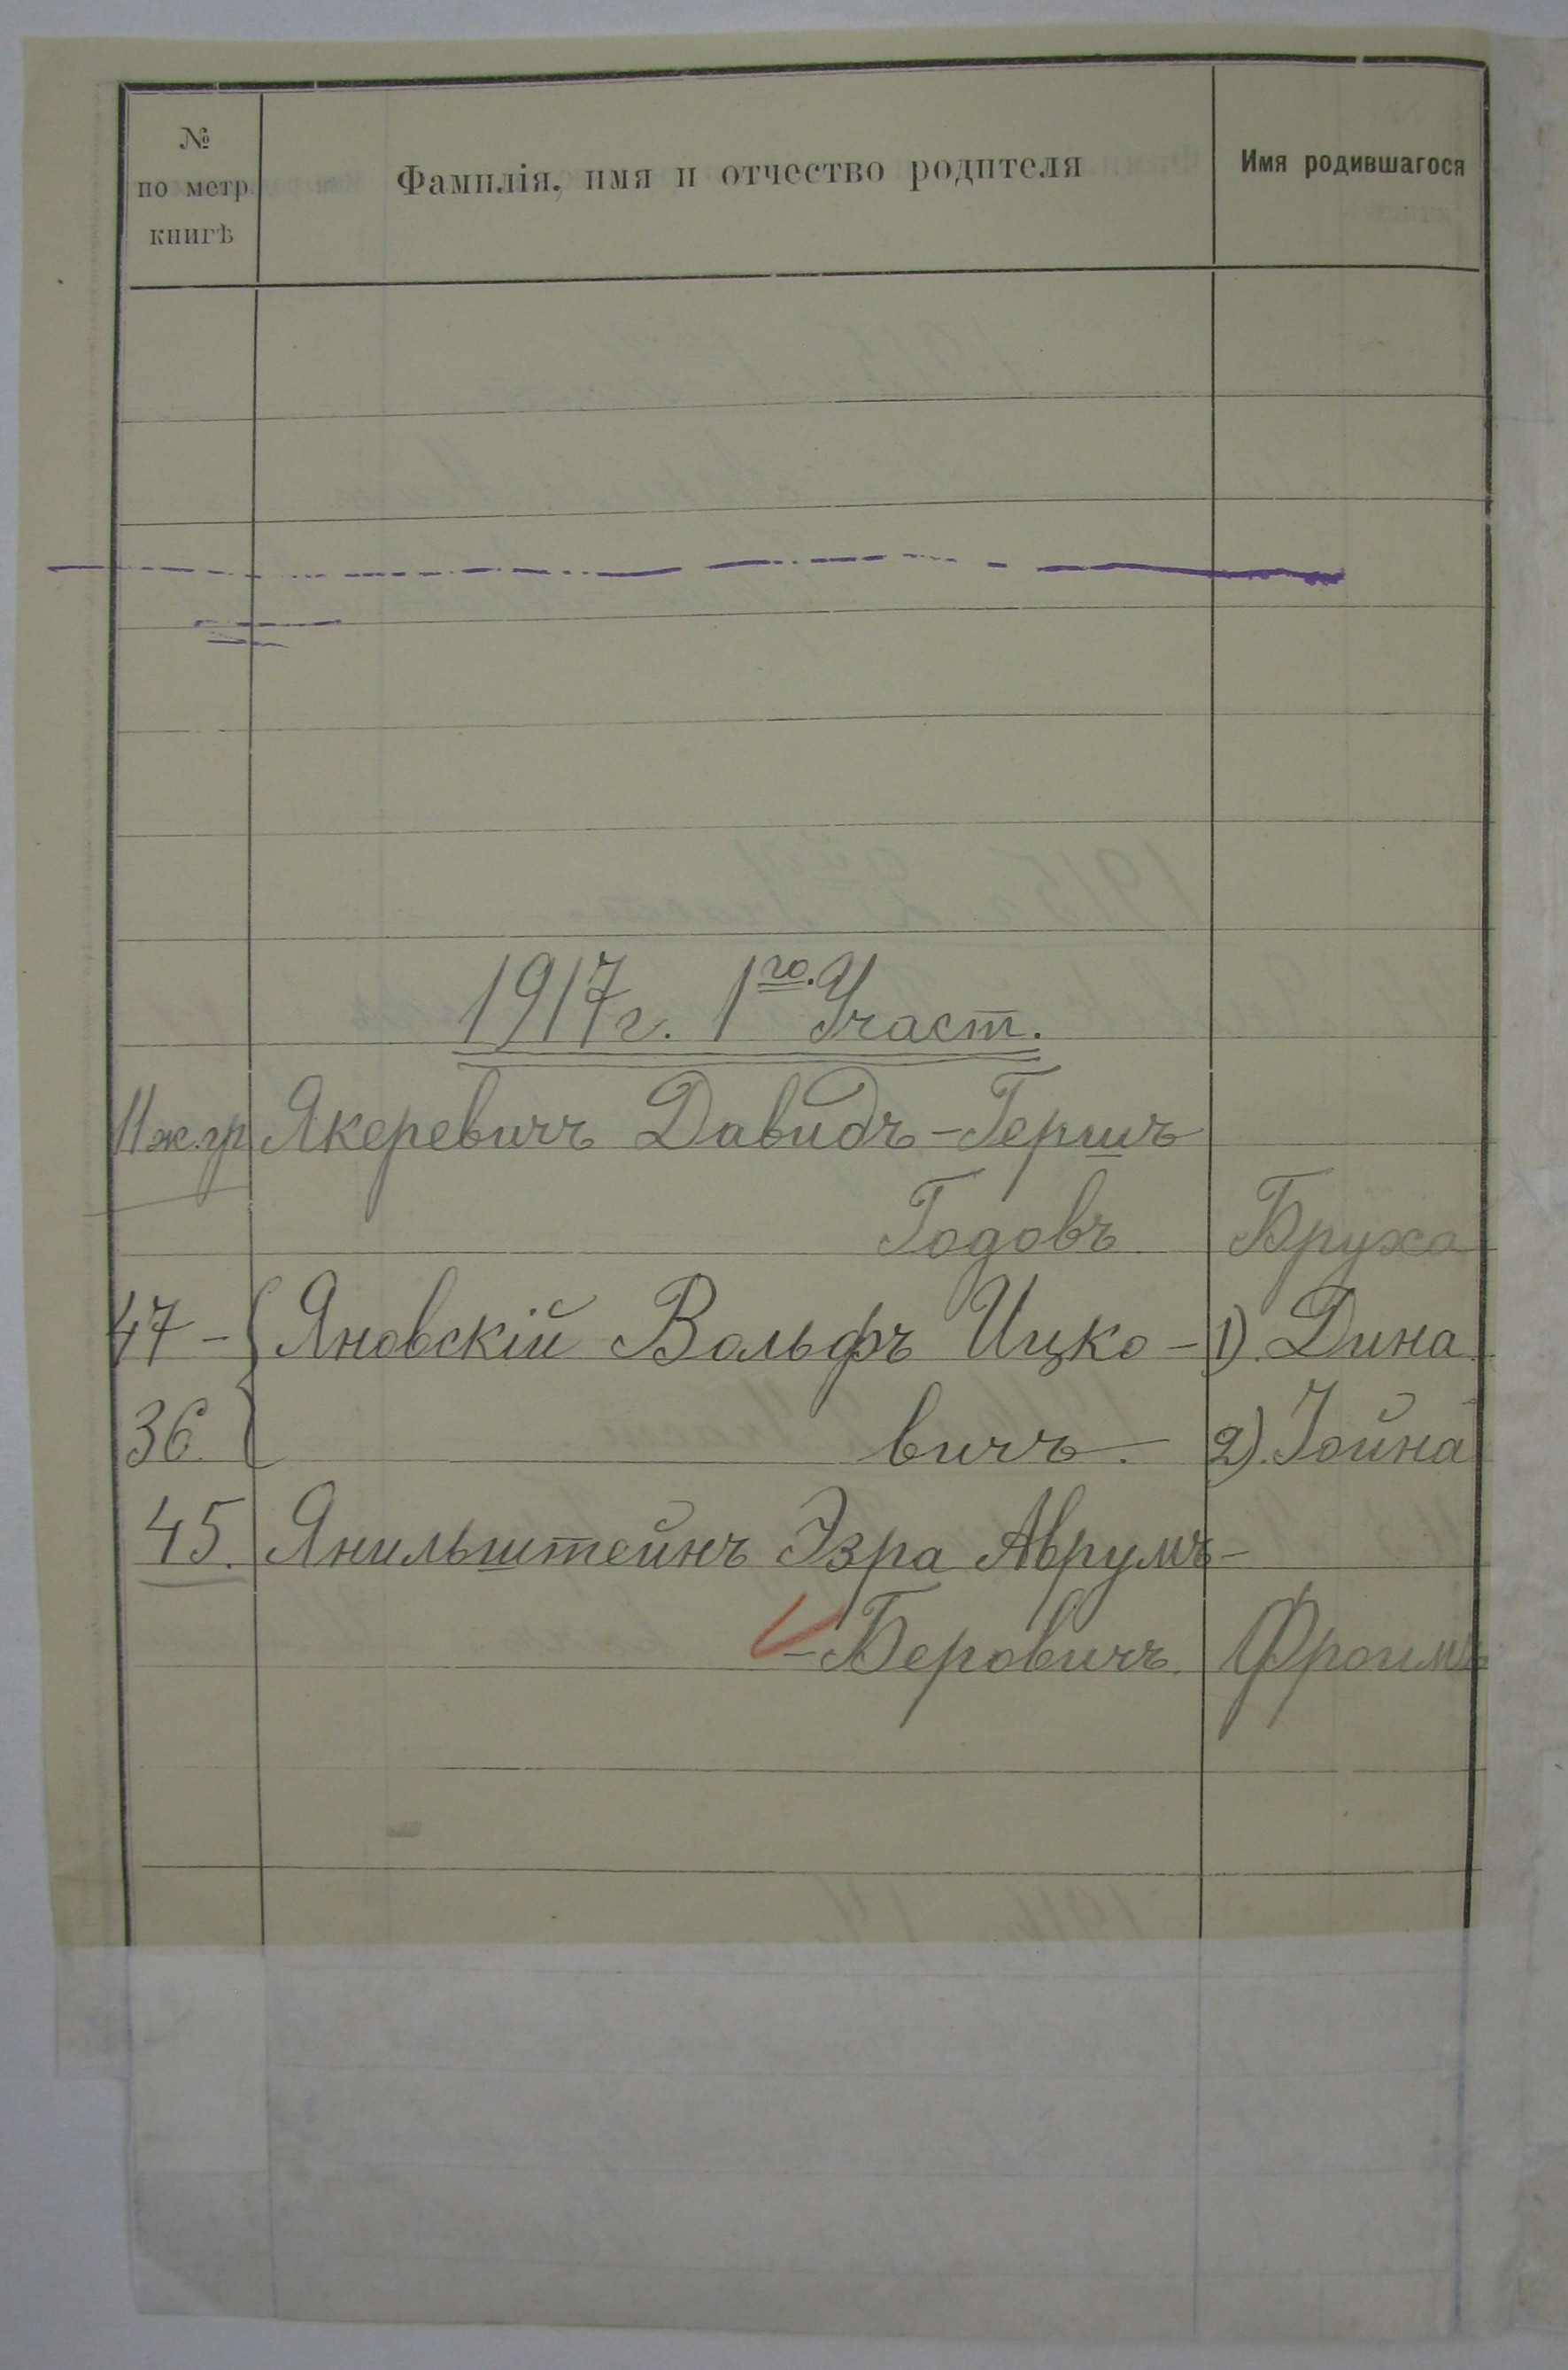 № по метр. книгѣ Фамилія, имя и отчество родителя Имя родившагося
1917 г. 1го. Участ.
11 ж.гр Якеревичъ Давидъ-Гершъ
Годовъ Бруха
47 - Яновскій Вольфъ Ицко- 1). Дина
36. вичъ. 2). Іойна
45. Янильштейнъ Эзра Аврумъ-
-Беровичъ. Фроимъ